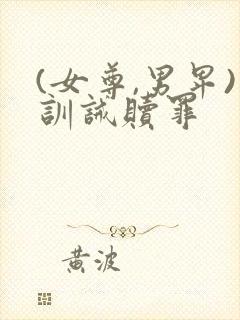 (女尊,男卑)
訓誡贖罪
黃波